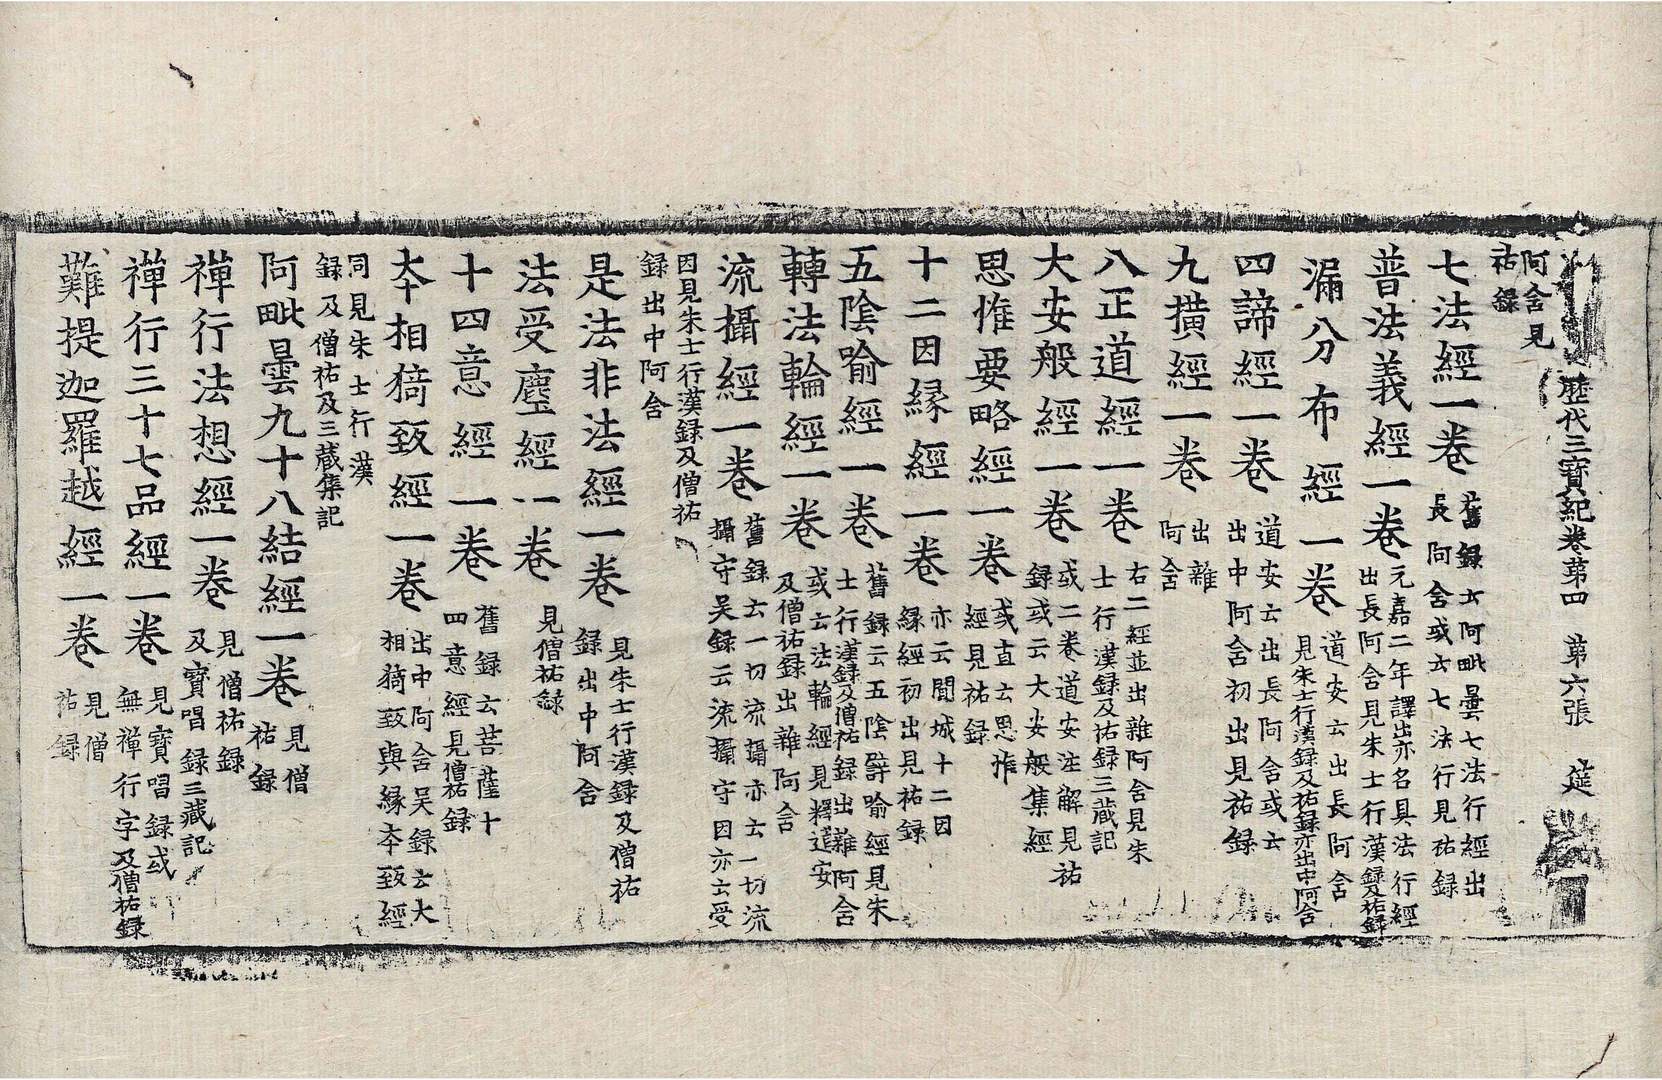 歷代三寶紀卷第四　第六張　筵
阿含見
祐録
七法經一卷 舊録云阿毗曇七法行經出
長阿含或云七法行見祐録
普法義經一卷 元嘉二年譯出亦名具法行經
出長阿含見朱士行漢録及祐録
漏分布經一卷 道安云出長阿含
見朱士行漢録及祐録亦出中阿含
四諦經一卷 道安云出長阿含或云
出中阿含初出見祐録
九横經一卷 出雜
阿含
八正道經一卷 右二經並出雜阿含見朱
士行漢録及祐録三藏記
大安般經一卷 或二卷道安注解見祐
録或云大安般集經
思惟要略經一卷 或直云思惟
經見祐録
十二因縁經一卷 亦云聞城十二因
縁經初出見祐録
五隂喻經一卷 舊録云五隂譬喻經見朱
士行漢録及僧祐録出雜阿含
轉法輪經一卷 或云法輪經見釋道安
及僧祐録出雜阿含
流攝經一卷 舊録云一切流攝亦云一切流
攝守吴録云流攝守因亦云受
因見朱士行漢録及僧祐
録出中阿含
是法非法經一卷 見朱士行漢録及僧祐
録出中阿含
法受塵經一卷 見僧祐録
十四意經一卷 舊録云菩薩十
四意經見僧祐録
本相猗致經一卷 出中阿含吴録云大
相猗致與縁本致經
同見朱士行漢
録及僧祐及三藏集記
阿毗曇九十八結經一卷 見僧
祐録
禪行法想經一卷 見僧祐録
及寶唱録三藏記
禪行三十七品經一卷 見寶唱録或
無禪行字及僧祐録
難提迦羅越經一卷 見僧
祐録